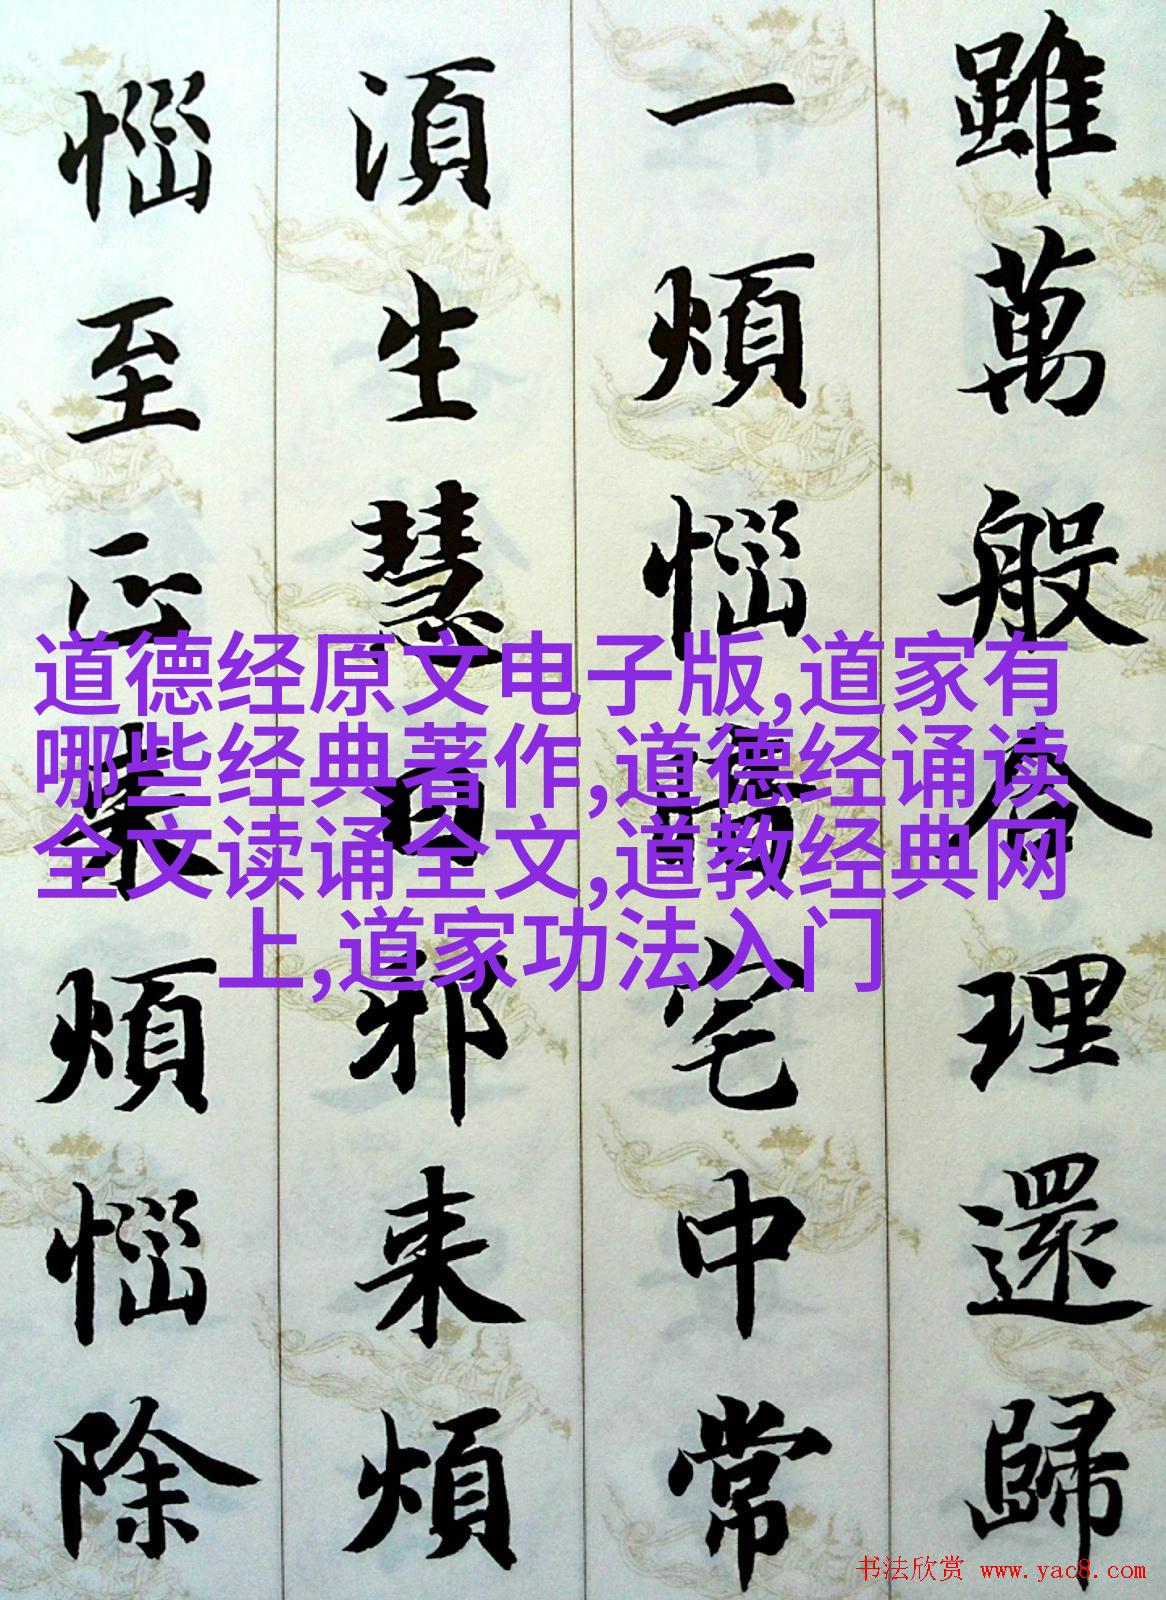 雖萬般合理還歸
一煩惱宅中常
湏生慧日邪来煩
惱至正煩惱除
道德经原文电子版,道家有
哪些经典著作,道德经诵读
全文读诵全文,道教经典网
上,道家功法入门
书法欣赏 www.yac8.com